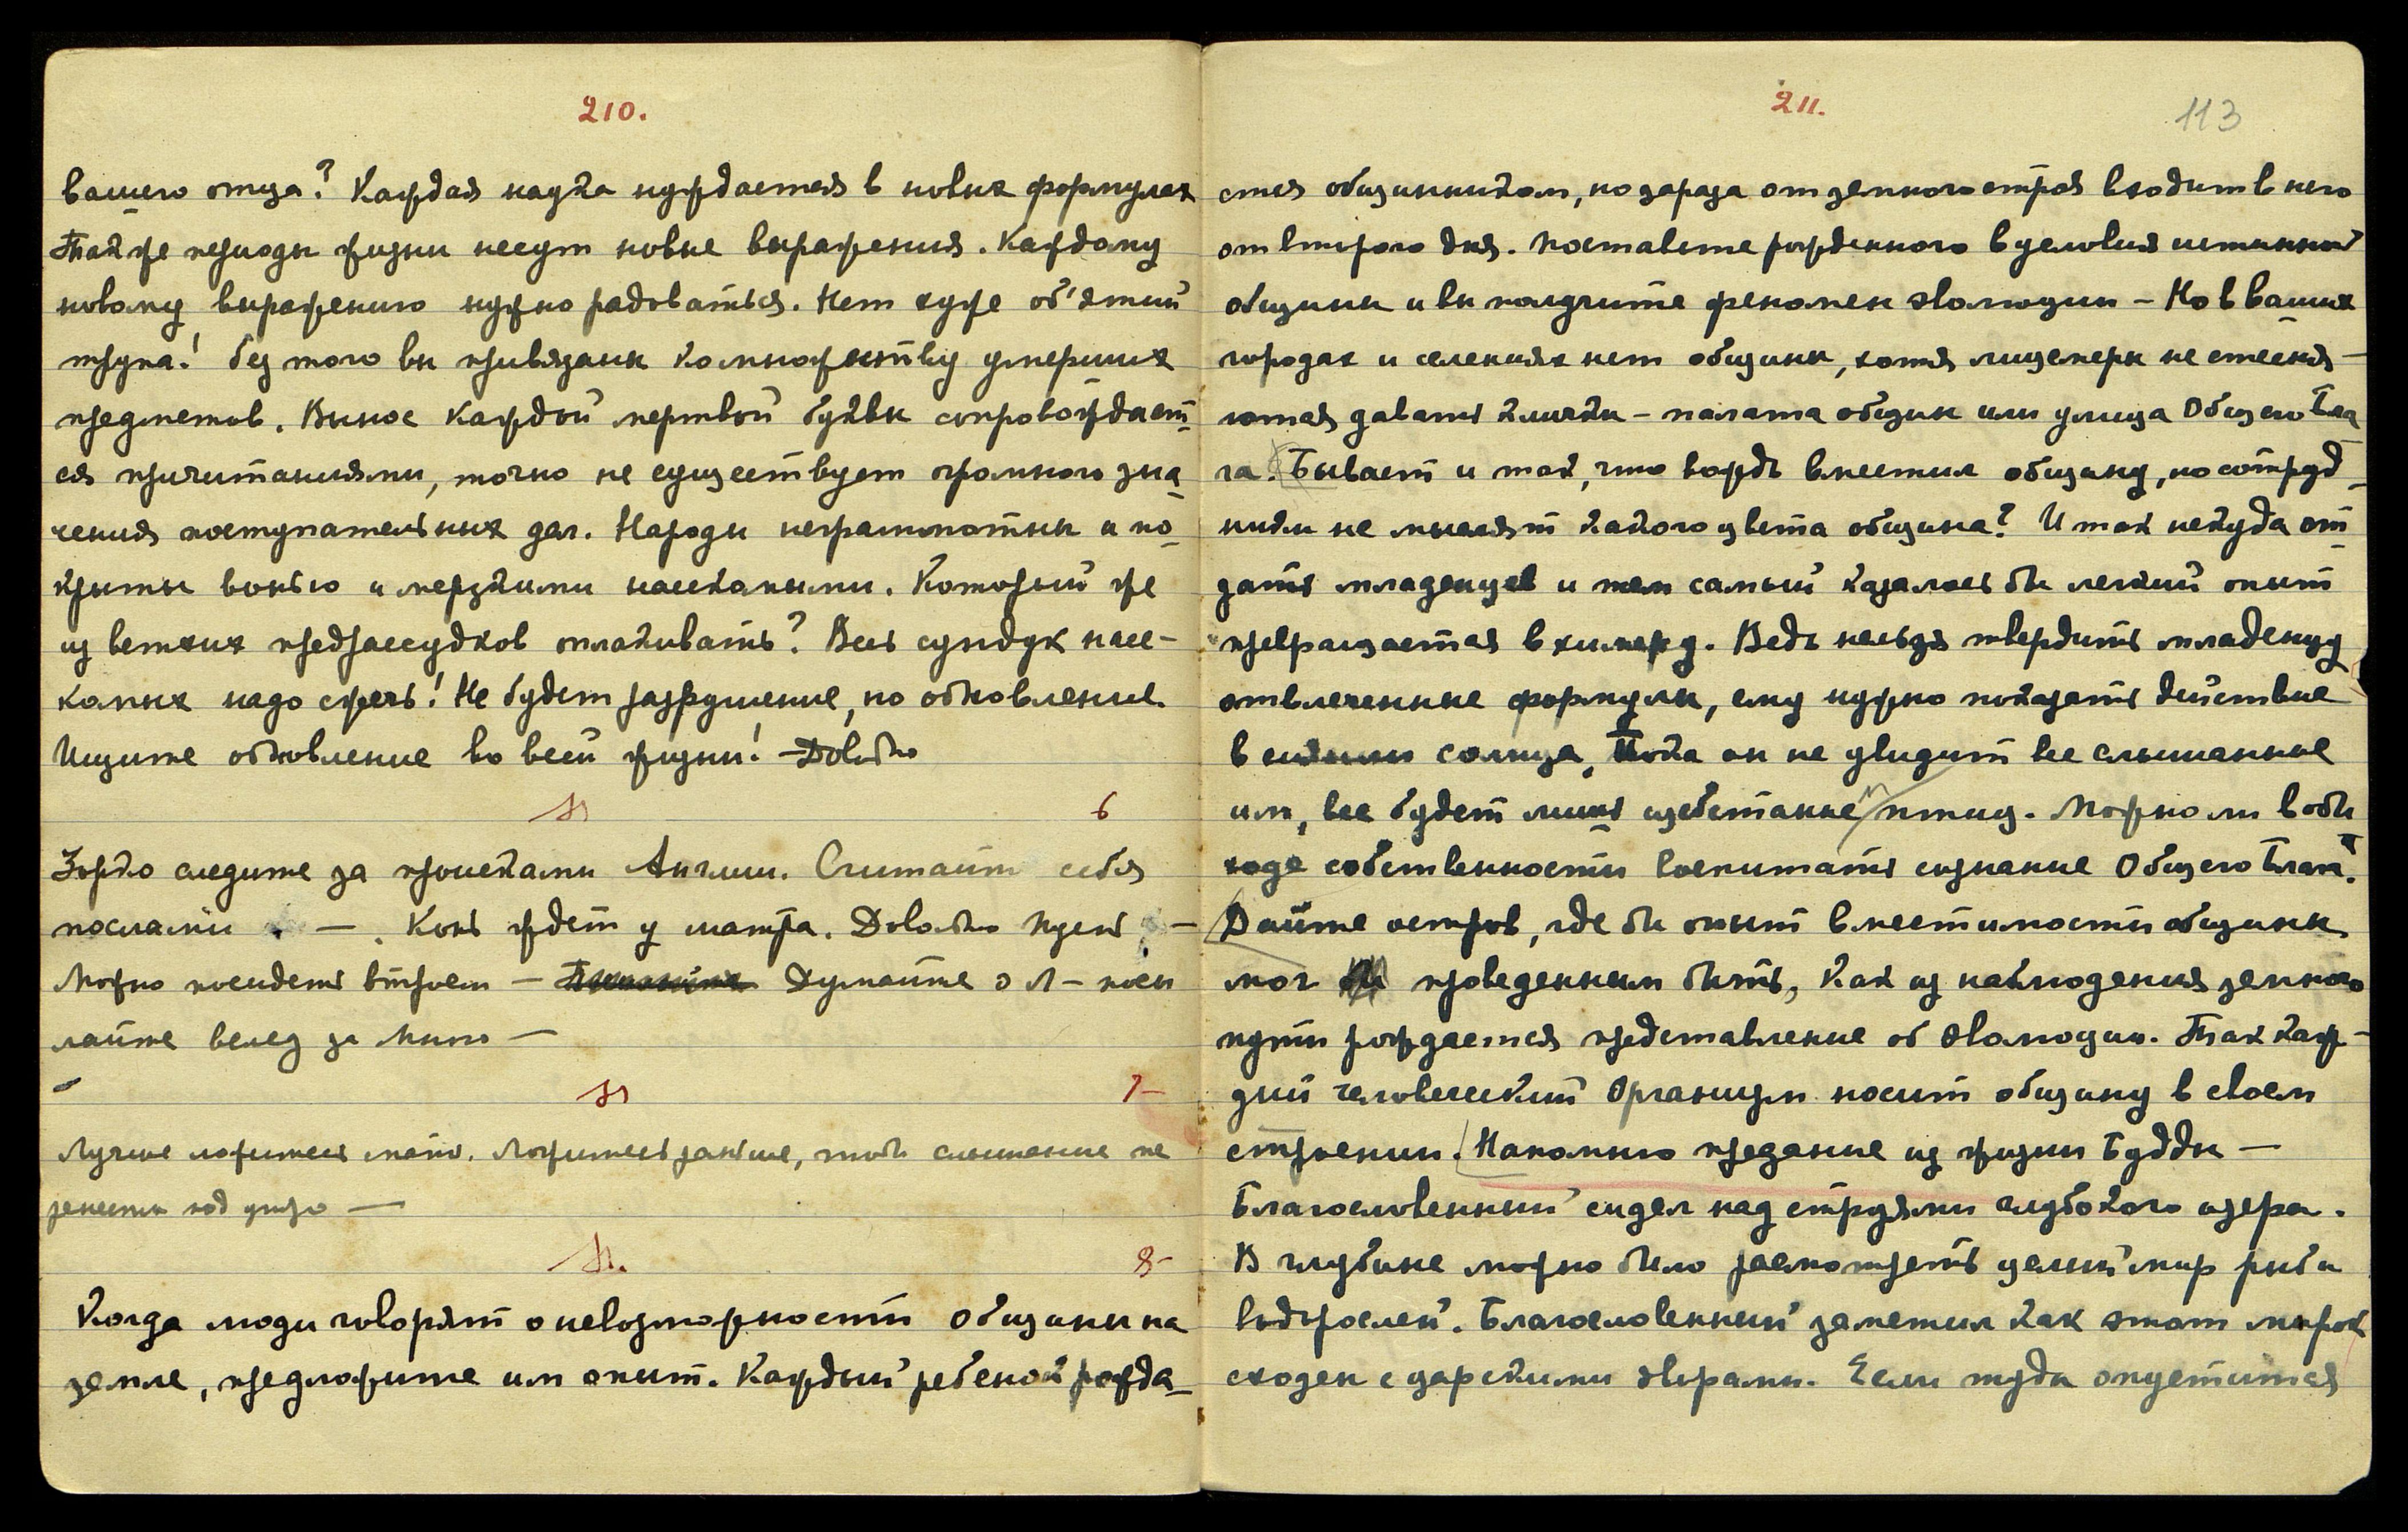 210.
вашего отца? Каждая наука нуждается в новых формулах
Также периоды жизни несут новые выражения. Каждому
новому выражению нужно радоваться. Нет хуже об'ятий
трупа! Без того вы привязаны ко множеству умерших
предметов. Вынос каждой мертвой буквы сопровождает
ся причитаниями, точно не существует огромного зна
чения поступательных дел. Народы неграмотны и по
крыты вонью и мерзкими насекомыми. Который же
из ветхих предрассудков оплакивать? Весь сундук насе-
комых надо сжечь! Не будет разрушение, но обновление.
Ищите обновление во всей жизни! — Довольно
6
Зорко следите за происками Англии. Считайте себя
послами — . Конь ждет у шатра. Довольно —
Можно посидеть втроем — Думайте о Л — посы
лайте вслед за Мною —
7-
Лучше ложитесь мало. Ложитесь раньше, чтобы смешение не
под утро —
8-
Когда люди говорят о невозможности Общины на
земле, предложите им опыт. Каждый ребенок рожда
211.
113
ется общинником, но зараза от земного строя входит в него
от второго дня. Поставьте рожденного в условия истинной
общины и вы получите феномен эволюции — Но в ваших
городах и селениях нет общины, хотя лицемеры не стесня-
ются давать клички — палата общин или улица Общего Бла
га. Бывает и так, что вождь вместил общину, но сотруд
ники не мыслят какого цвета община? И так некуда от
дать младенцев и тем самый казалось бы легкий опыт
превращается в химеру. Ведь нельзя твердить младенцу
отвлеченные формулы, ему нужно показать действие
в сиянии солнца, Пока он не увидит все слышанное
им, все будет лишь щебетание птиц. Можно ли в оби
ходе собственности воспитать сознание Общего Блага.
Дайте остров, где бы опыт вместимости общины
мог проведенным быть, Как из наблюдения земного
пути рождается представление об Эволюции. Так каж-
дый человеческий Организм носит общину в своем
строении. Напомню предание из жизни Будды —
Благословенный сидел над струями глубокого озера.
В глубине можно было рассмотреть целый мир рыб и
водорослей. Благословенный заметил как этот мирок
сходен с царскими дворами. Если туда опустится